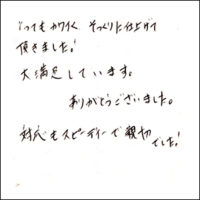 とってもかわいく そっくりに仕上げて
頂きました!
大満足しています。
ありがとうございました。
対応もスピーディーで親切
でした!